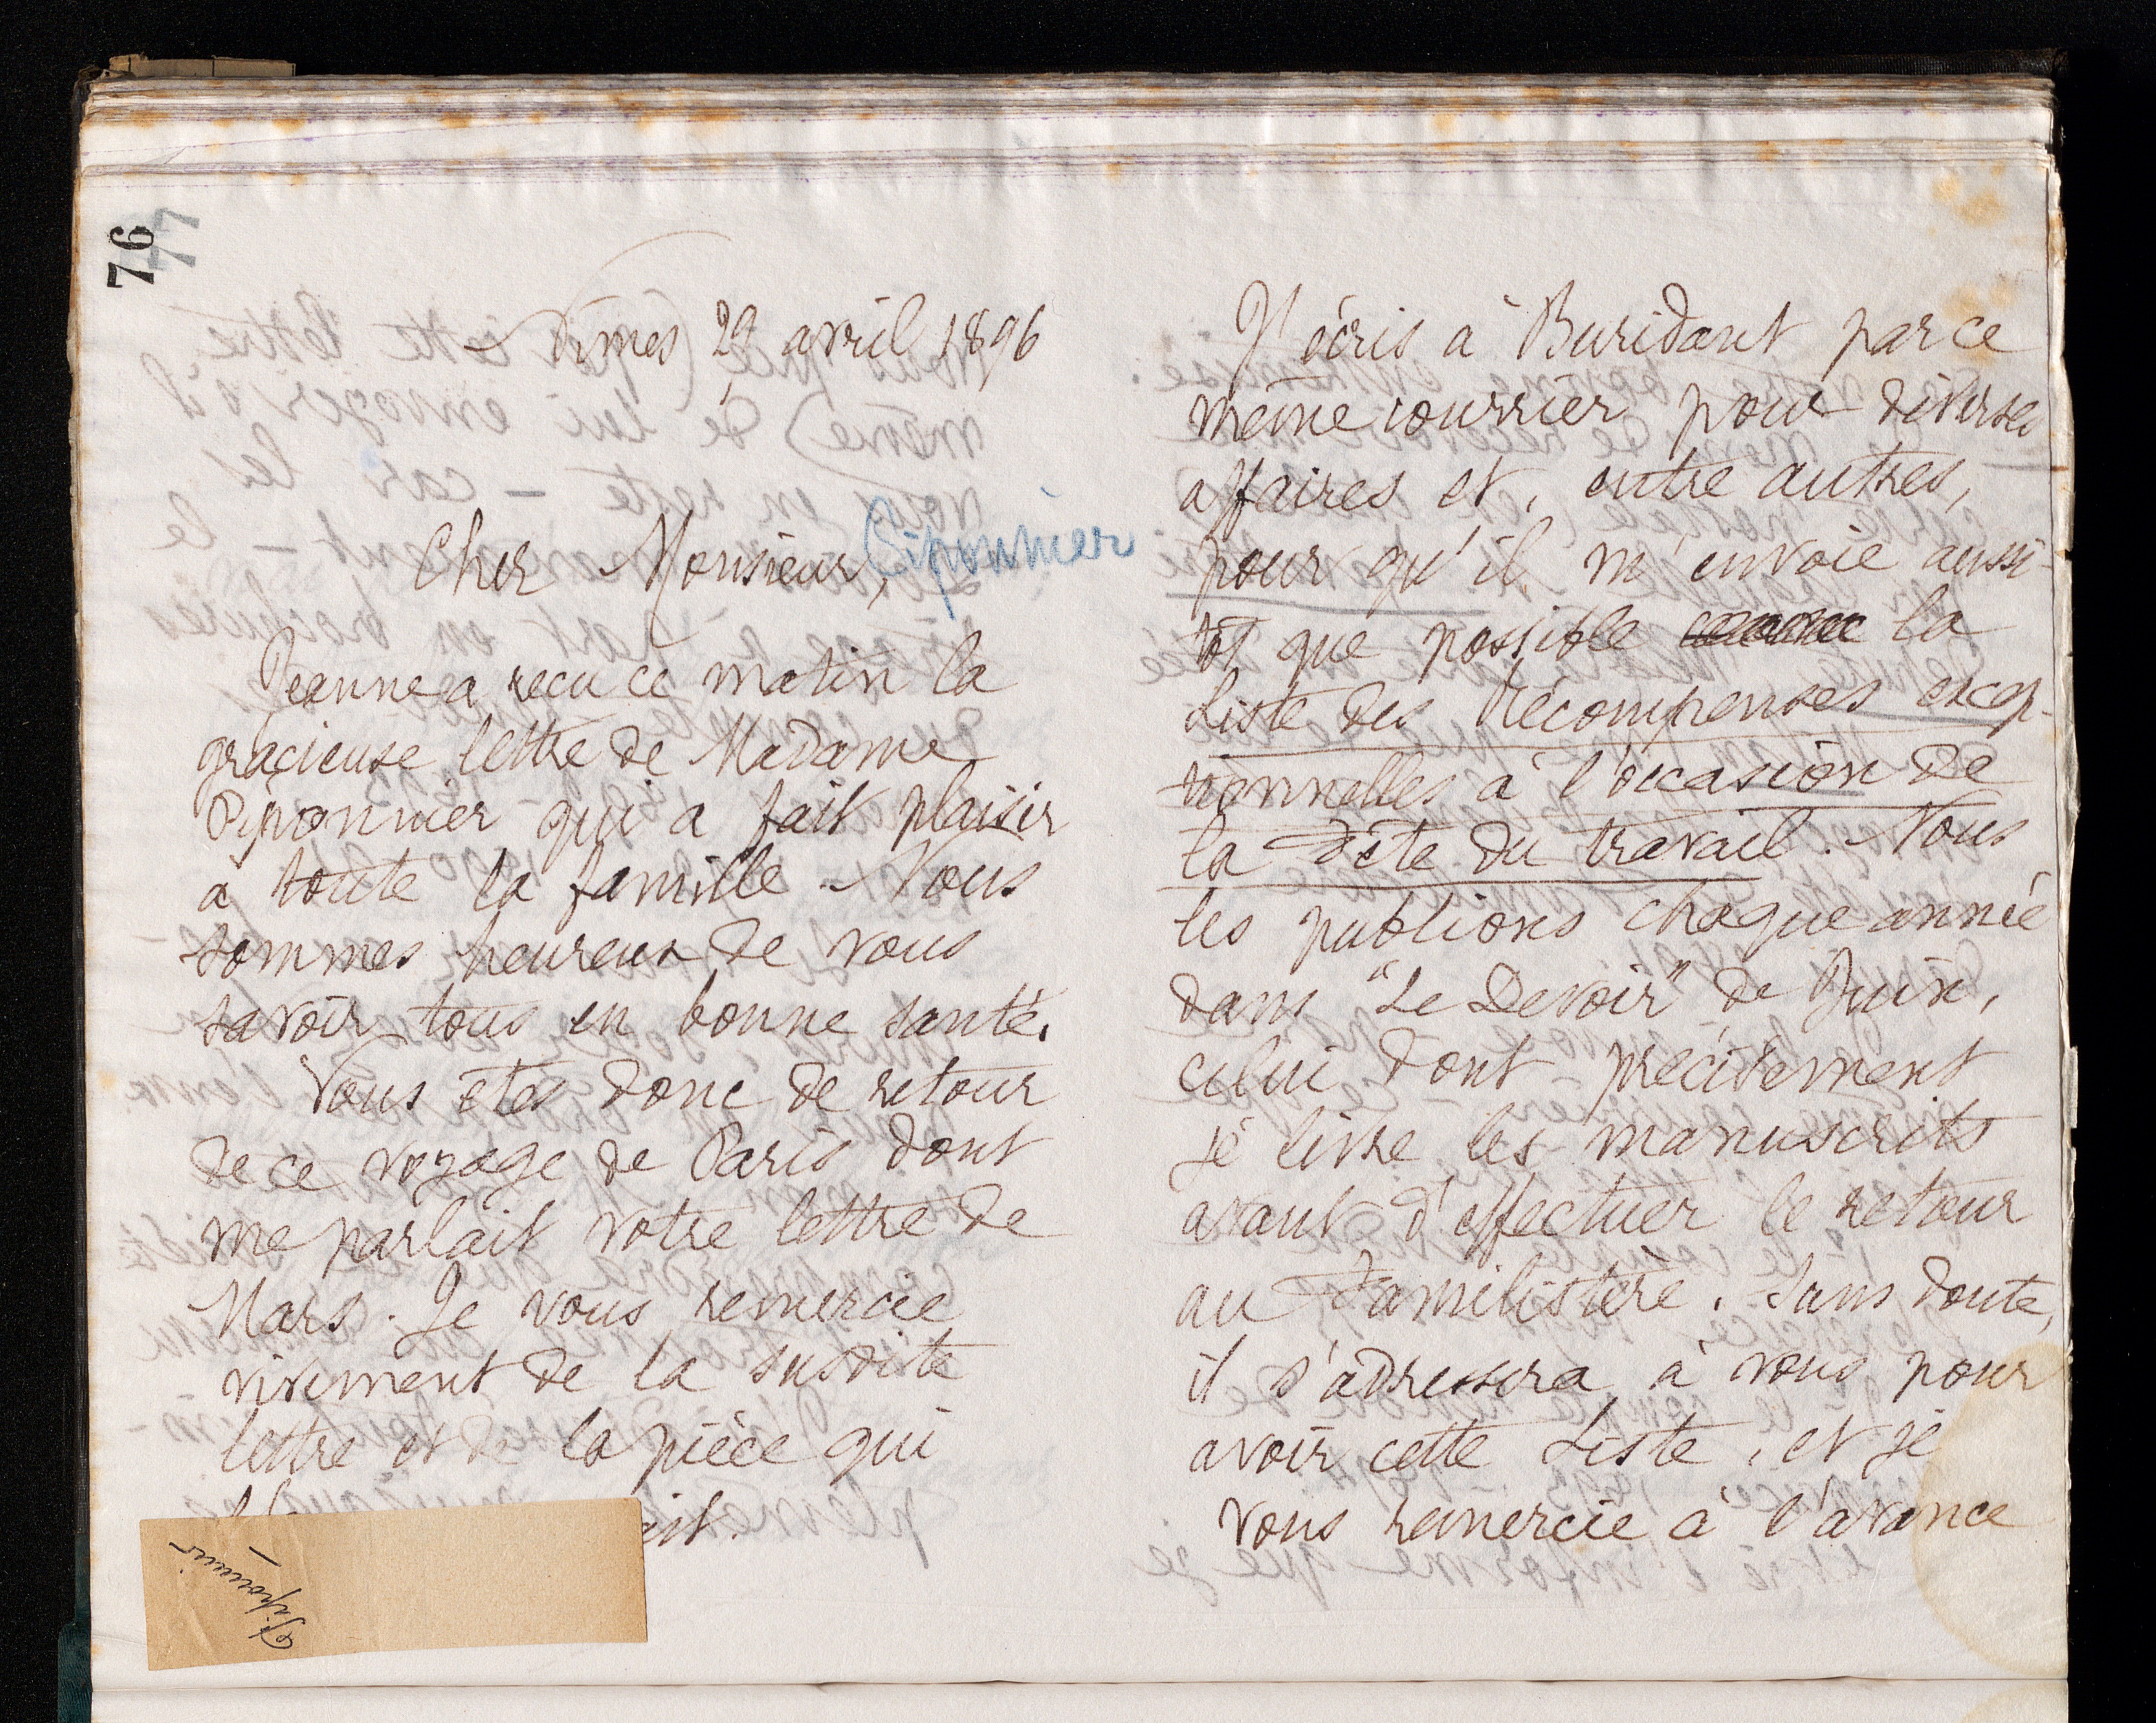 76
77
Nîmes 29 avril 1896
Cher Monsieur, Piponnier
Jeanne a reçu ce matin la
gracieuse lettre de Madame
Piponnier qui a fait plaisir
à toute la famille. Nous
sommes heureux de vous
savoir tous en bonne santé.
Vous êtes donc de retour
de ce voyage de Paris dont
me parlait votre lettre de
Mars. Je vous remercie
vivement de la susdite
lettre et de la pièce qui
ait.
Piponnier
J'écris à Buridant par ce
même courrier pour diverses
affaires et, entre autres,
pour qu'il m'envoie aussi-
tôt que possible la
Liste des Récompenses excep-
tionnelles à l'occasion de
la Fête du travail. Nous
les publions chaque année
dans "Le Devoir" de Juin,
celui dont précisément
je livre les manuscrits
avant d'effectuer le retour
au Familistère. Sans doute,
il s'adressera à vous pour
avoir cette Liste, et je
vous remercie à l'avance